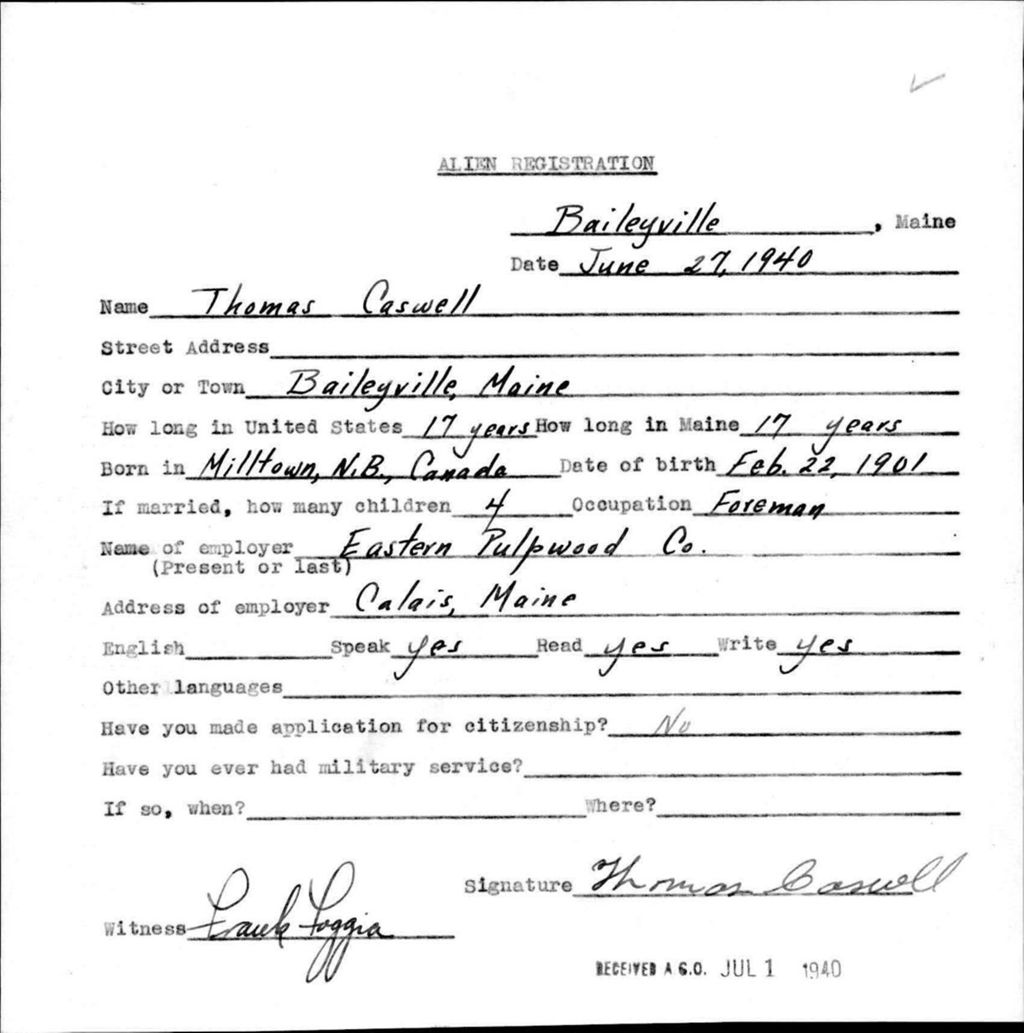 ALIEN REGISTRATION
Baileyville, Maine
Date June 27, 1940
Name Thomas Caswell
Street Address
City or Town Baileyville, Maine
How long in United States 17 years How long in Maine 17 years
Born in Milltown, N.B., Canada Date of birth Feb. 22, 1901
If married, how many children 4 Occupation Foreman
Name of employer Eastern Pulpwood Co.
(Present or last)
Address of employer Calais, Maine
English Speak yes Read yes Write yes
Other languages
Have you made application for citizenship? No
Have you ever had military service?
If so, when? Where?
Signature Thomas Caswell
Witness Frank Foggia
RECEIVED A.G.O. JUL 1 1940